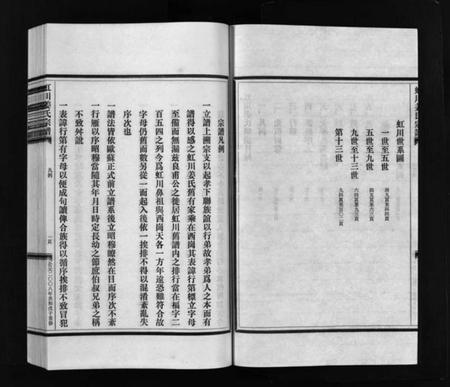 虹川世系圖
一世至五世
五世至九世
九世至十三世
第十三世
宗譜凡例
一立譜上溯宗支以起孝下聯族誼以行弟故孝弟爲人之本而有
譜得以感之虹川姜氏舊有家乘在西崗其表諱行第標立字母
至備而無漏茲良甫公之徙居虹川舊譜内之排行當在福字二
百五四之列今爲虹川鼻祖與西崗天各一方年遠恐難符合故
字母仍舊而數另從一而起入後依一挨排不得以混淆紊亂失
序次也
一譜法皆依歐蘇正式前立譜系後立昭穆瞭然在目而序次不紊
一行雁以序昭穆當隨其年月日時定長幼之節庶伯叔兄弟之稱
不致舛訛
一表諱行第有字母以便成句讀俾合族得以循序挨排不致冒犯
虹川姜氏宗譜
凡例
一頁